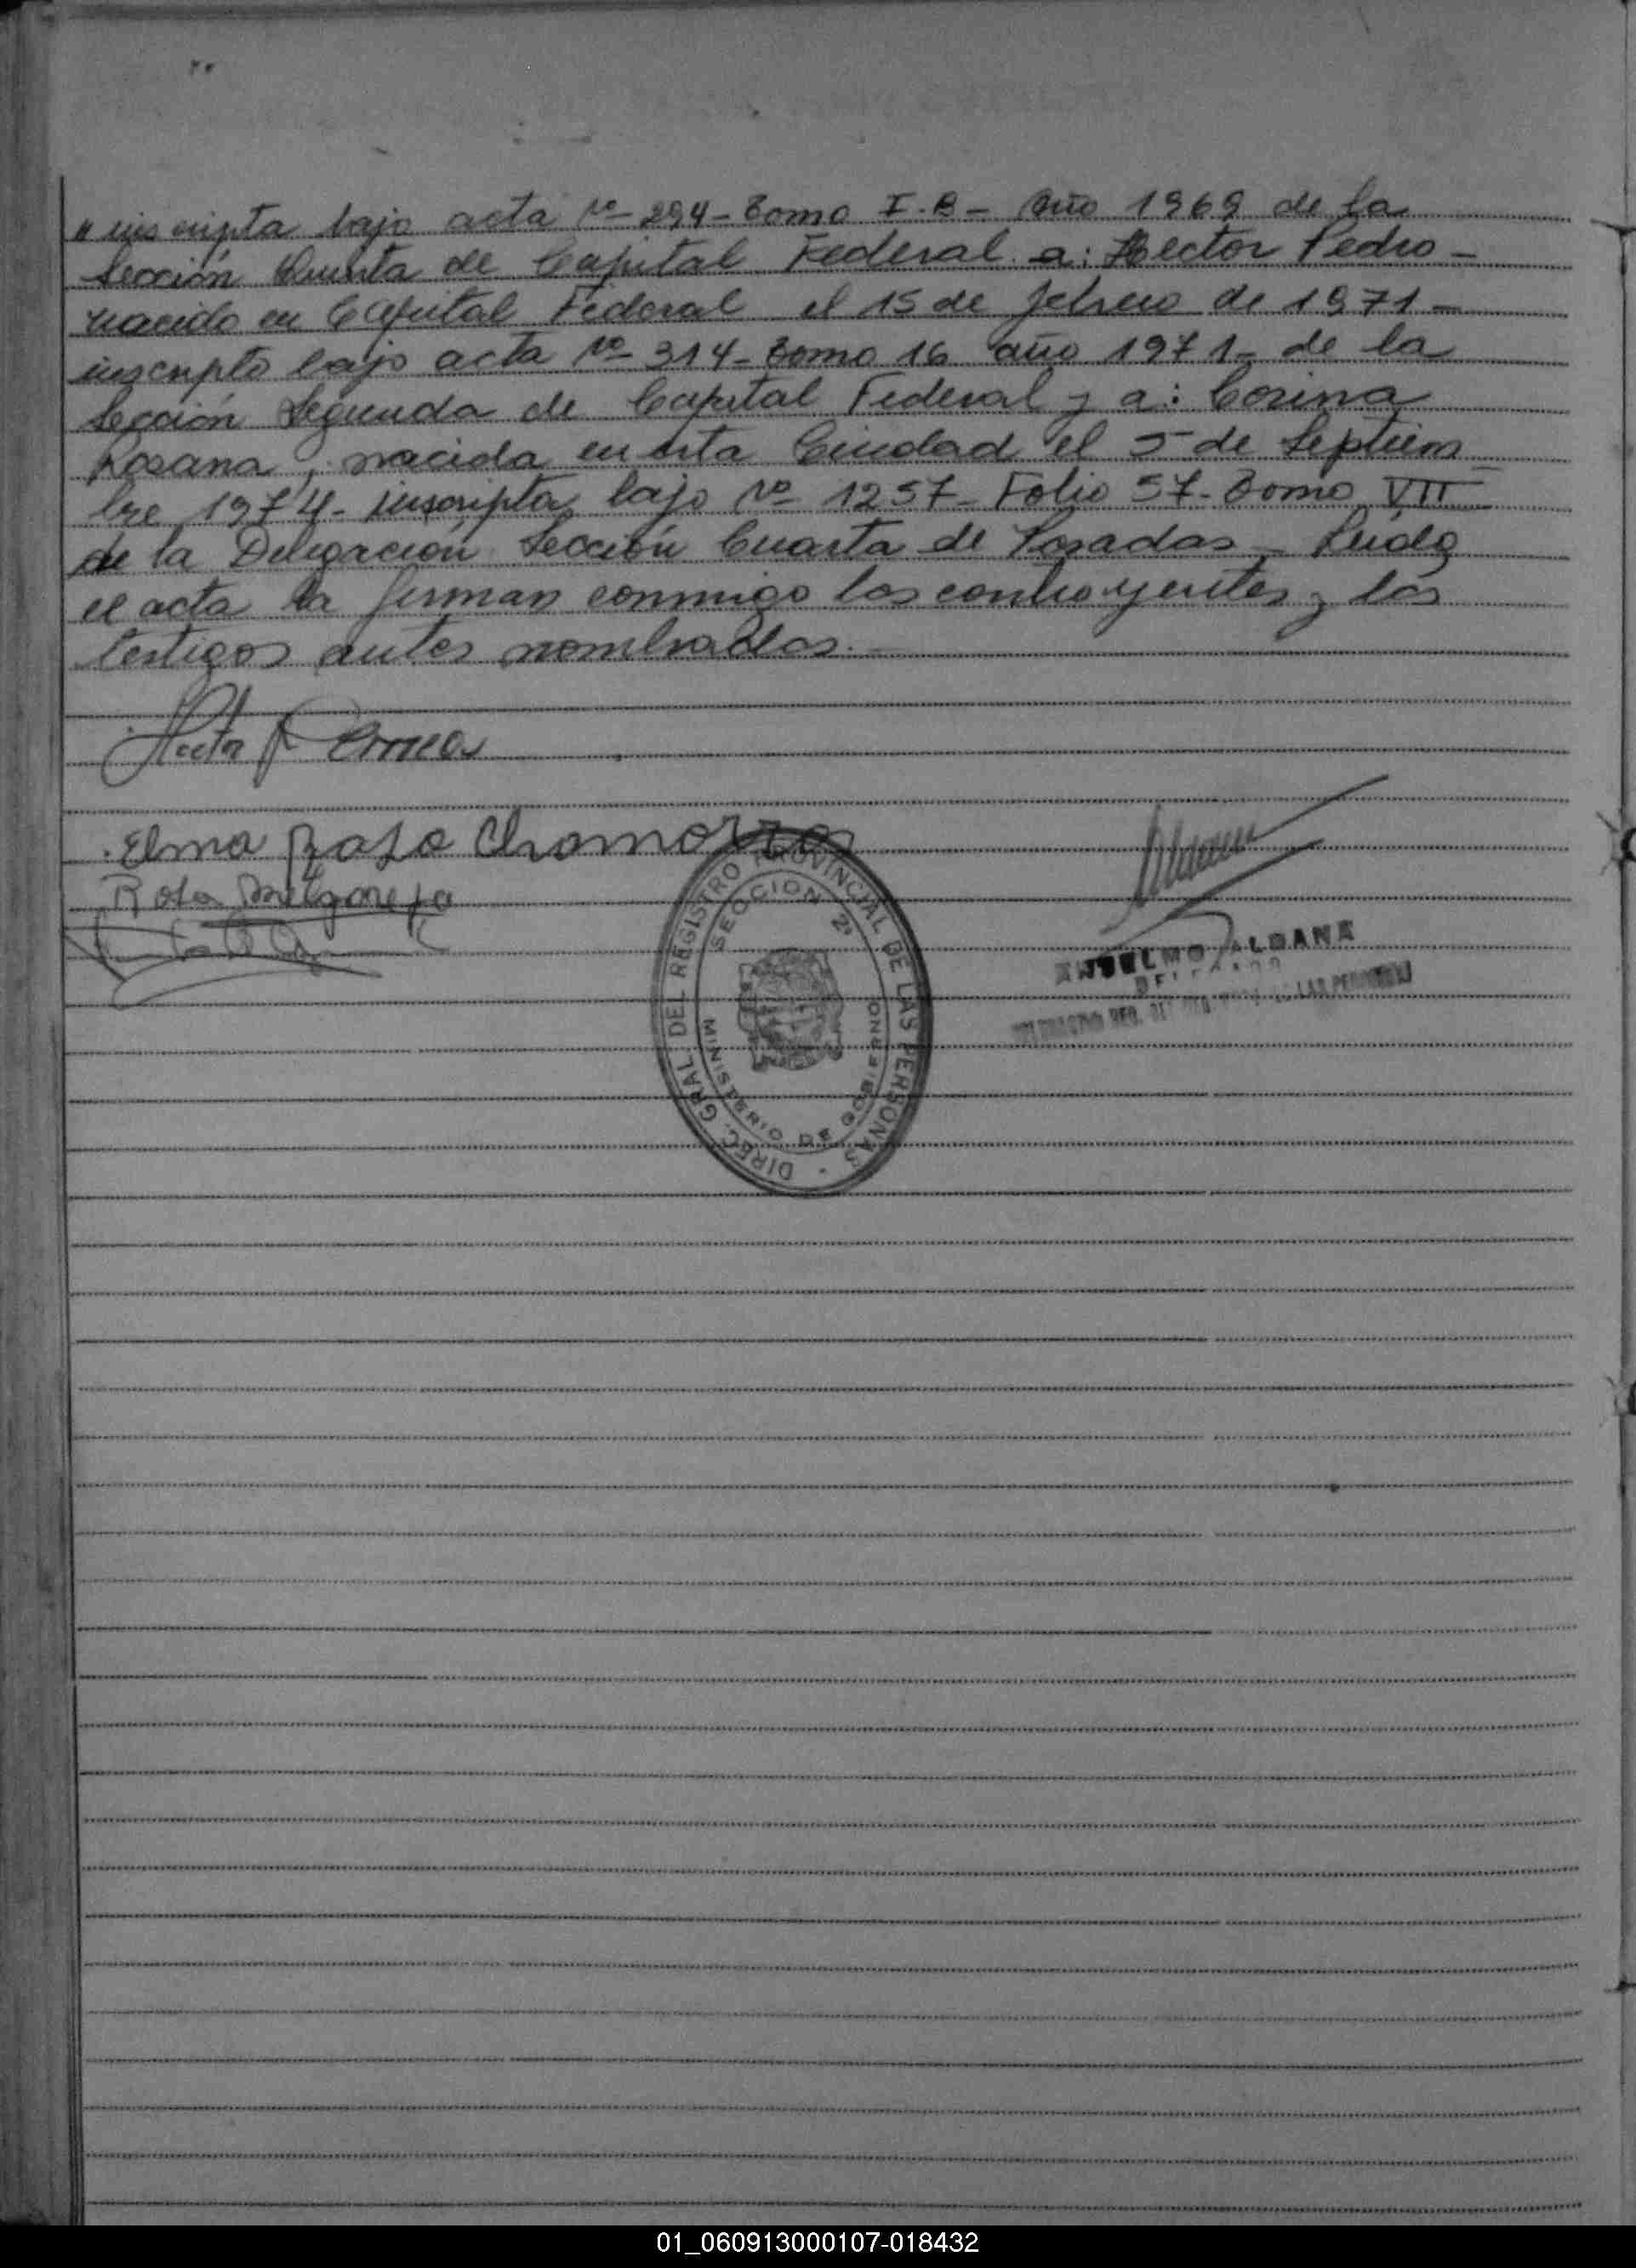 " inscripta bajo acta Nº 294 - Tomo I.B - Año 1969 de la
Sección Quinta de Capital Federal a: Hector Pedro -
nacido en Capital Federal el 15 de febrero de 1971 -
inscripto bajo acta Nº 314 - Tomo 16 año 1971 - de la
Sección Segunda de Capital Federal y a: Corina
Rosana, nacida en esta Ciudad el 5 de Septiem
bre 1974 - inscripta bajo Nº 1257 - Folio 57 - Tomo VII
de la Delegación Sección Cuarta de Posadas - Leida
el acta la firman conmigo los contrayentes y los
testigos antes nombrados. -
Hector P Correa
Elma Rosa Chamorro
Rosa Melgarejo
DIREC. GRAL. DEL REGISTRO PROVINCIAL DE LAS PERSONAS
SECCION 2ª
MINISTERIO DE GOBIERNO
ANSELMO ALDANA
DELEGADO
LAS PERSONAS
01_060913000107-018432